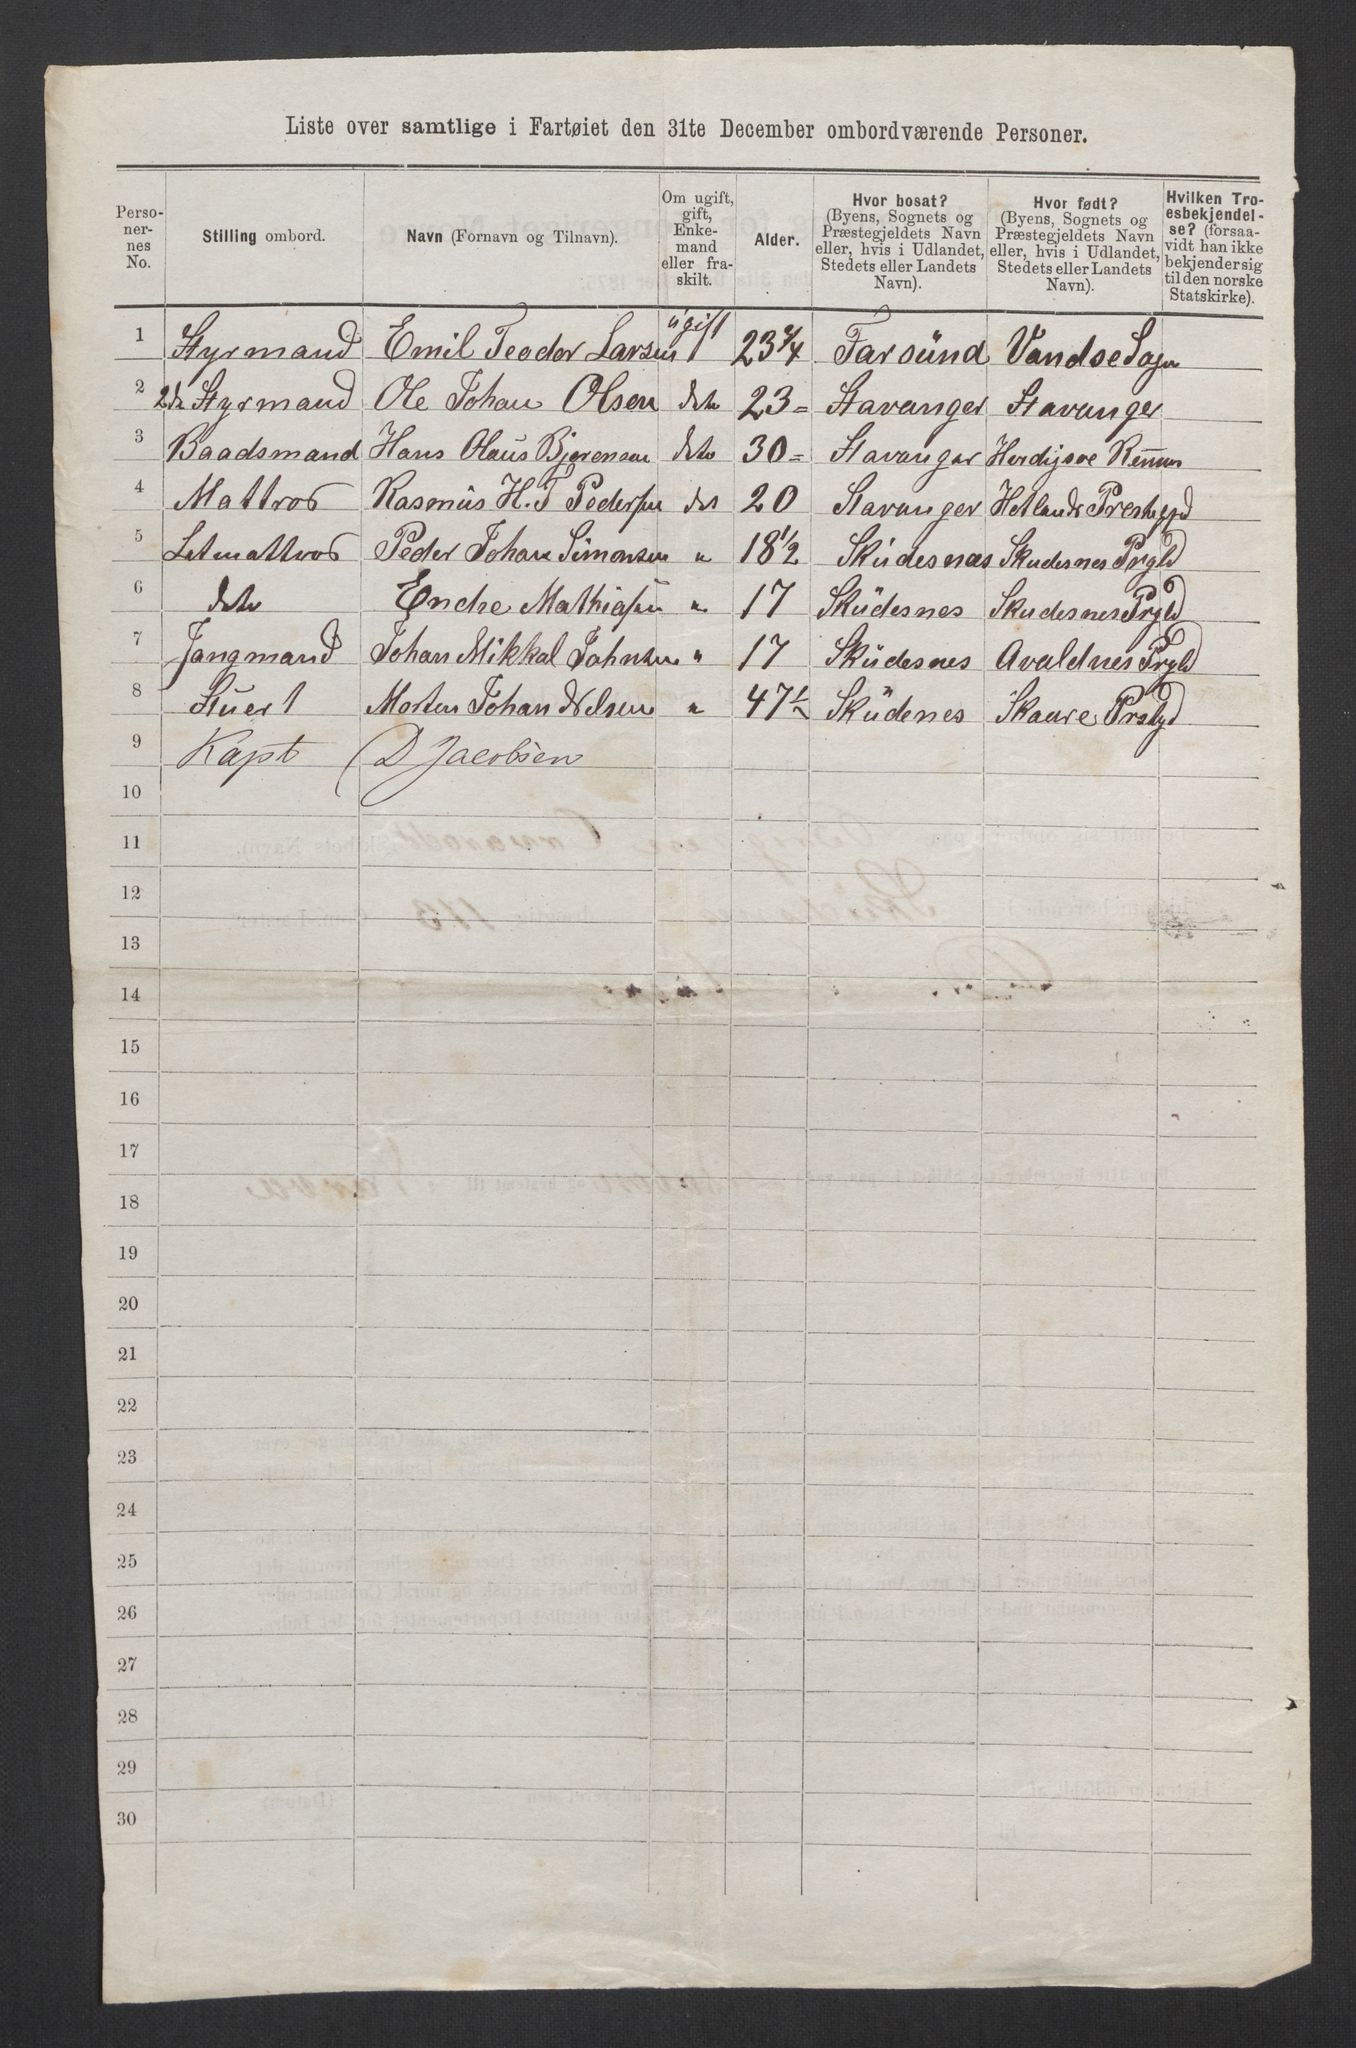 Liste over samtlige i Fartøiet den 31te December ombordværende Personer.
Perso-
ner-
nes
No.
Stilling ombord.
Navn (Fornavn og Tilnavn).
Om ugift,
gift,
Enke-
mand
eller fra-
skilt.
Alder.
Hvor bosat?
(Byens, Sognets og
Præstegjeldets Navn
eller, hvis i Udlandet,
Stedets eller Landets
Navn).
Hvor født?
(Byens, Sognets og
Præstegjeldets Navn
eller, hvis i Udlandet,
Stedets eller Landets
Navn).
Hvilken Tro-
esbekjendel-
se? (forsaa-
vidt han ikke
bekjender sig
til den norske
Statskirke).
1 Styrmand Emil Teodor Larsen ugift 23 3/4 Farsund Vandse Sogn
2 2de Styrmand Ole Johan Olsen dto 23 = Stavanger Stavanger
3 Baadsmand Hans Olaus Bjørensen dto 30 = Stavanger
4 Mattros Rasmus H. T Pedersen dto 20 Stavanger Hetlands Prestegjd
5 Letmattros Peder Johan Simonsen " 18 1/2 Skudesnæs Skudesnes Prgld
6 dito Endre Mathiasen " 17 Skudesnes Skudesnes Prgld
7 Jangmand Johan Mikkal Johnsen " 17 Skudesnes Avaldnes Prgld
8 Stuert Morten Johan Nelsen " 47 1/2 Skudenes Skaare Prstgd
9 Kapt D Jacobsen
10
11
12
13
14
15
16
17
18
19
20
21
22
23
24
25
26
27
28
29
30